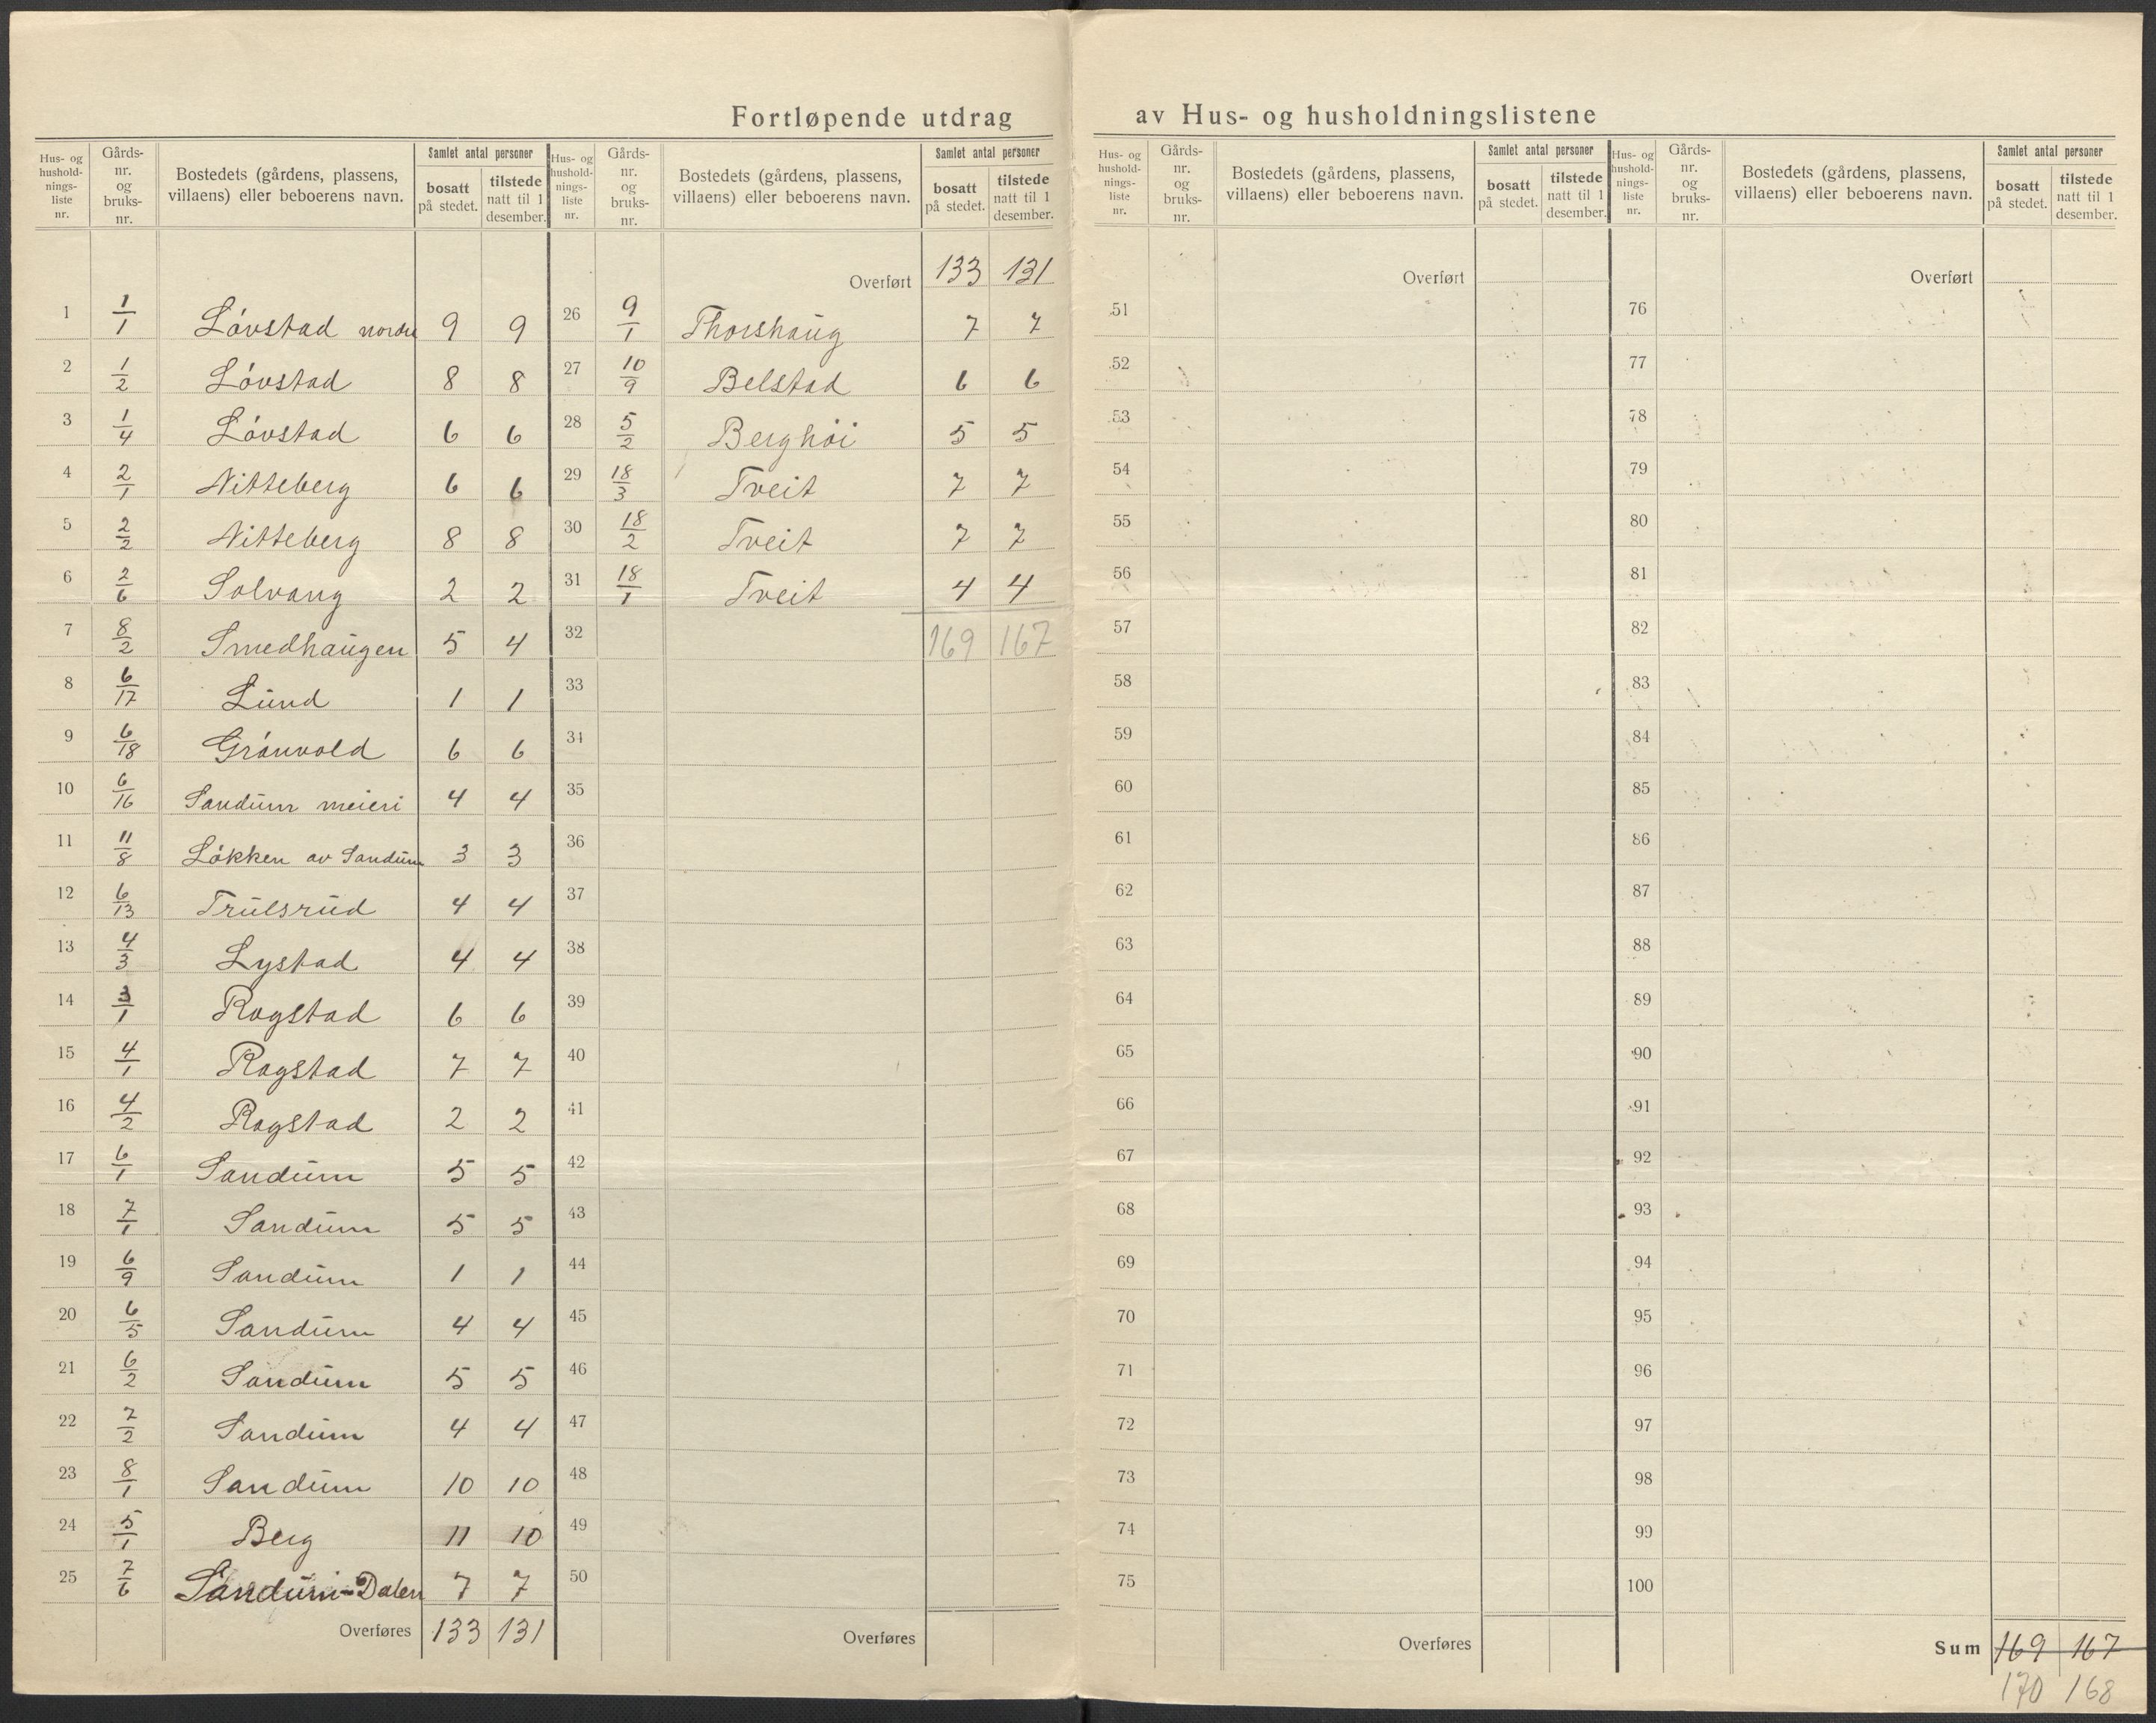 Fortløpende utdrag av Hus- og husholdningslistene
Hus- og hushold-nings-liste nr. | Gårds-nr. og bruks-nr. | Bostedets (gårdens, plassens, villaens) eller beboerens navn. | Samlet antal personer | bosatt på stedet. | tilstede natt til 1 desember.
1 1/1 Lóvstad nordre 9 9
2 1/2 Lóvstad 8 8
3 1/4 Lóvstad 6 6
4 2/1 Nitteberg 6 6
5 2/2 Nitteberg 8 8
6 2/6 Solvang 2 2
7 8/2 Smedhaugen 5 4
8 6/17 Lund 1 1
9 6/18 Grónvold 6 6
10 6/16 Sandum meieri 4 4
11 11/8 Lókken av Sandum 3 3
12 6/13 Trulsrud 4 4
13 4/3 Lystad 4 4
14 3/1 Rogstad 6 6
15 4/1 Rogstad 7 7
16 4/2 Rogstad 2 2
17 6/1 Sandum 5 5
18 7/1 Sandum 5 5
19 6/9 Sandum 1 1
20 6/5 Sandum 4 4
21 6/2 Sandum 5 5
22 7/2 Sandum 4 4
23 8/1 Sandum 10 10
24 5/1 Berg 11 10
25 7/6 Sandum-Dalen 7 7
Overføres 133 131
Hus- og hushold-nings-liste nr. | Gårds-nr. og bruks-nr. | Bostedets (gårdens, plassens, villaens) eller beboerens navn. | Samlet antal personer | bosatt på stedet. | tilstede natt til 1 desember.
Overført 133 131
26 9/1 Thorshaug 7 7
27 10/9 Belstad 6 6
28 5/2 Berghói 5 5
29 18/3 Tveit 7 7
30 18/2 Tveit 7 7
31 18/1 Tveit 4 4
32 169 167
33
34
35
36
37
38
39
40
41
42
43
44
45
46
47
48
49
50
Overføres
Hus- og hushold-nings-liste nr. | Gårds-nr. og bruks-nr. | Bostedets (gårdens, plassens, villaens) eller beboerens navn. | Samlet antal personer | bosatt på stedet. | tilstede natt til 1 desember.
Overført
51
52
53
54
55
56
57
58
59
60
61
62
63
64
65
66
67
68
69
70
71
72
73
74
75
Overføres
Hus- og hushold-nings-liste nr. | Gårds-nr. og bruks-nr. | Bostedets (gårdens, plassens, villaens) eller beboerens navn. | Samlet antal personer | bosatt på stedet. | tilstede natt til 1 desember.
Overført
76
77
78
79
80
81
82
83
84
85
86
87
88
89
90
91
92
93
94
95
96
97
98
99
100
Sum 169 167
170 168